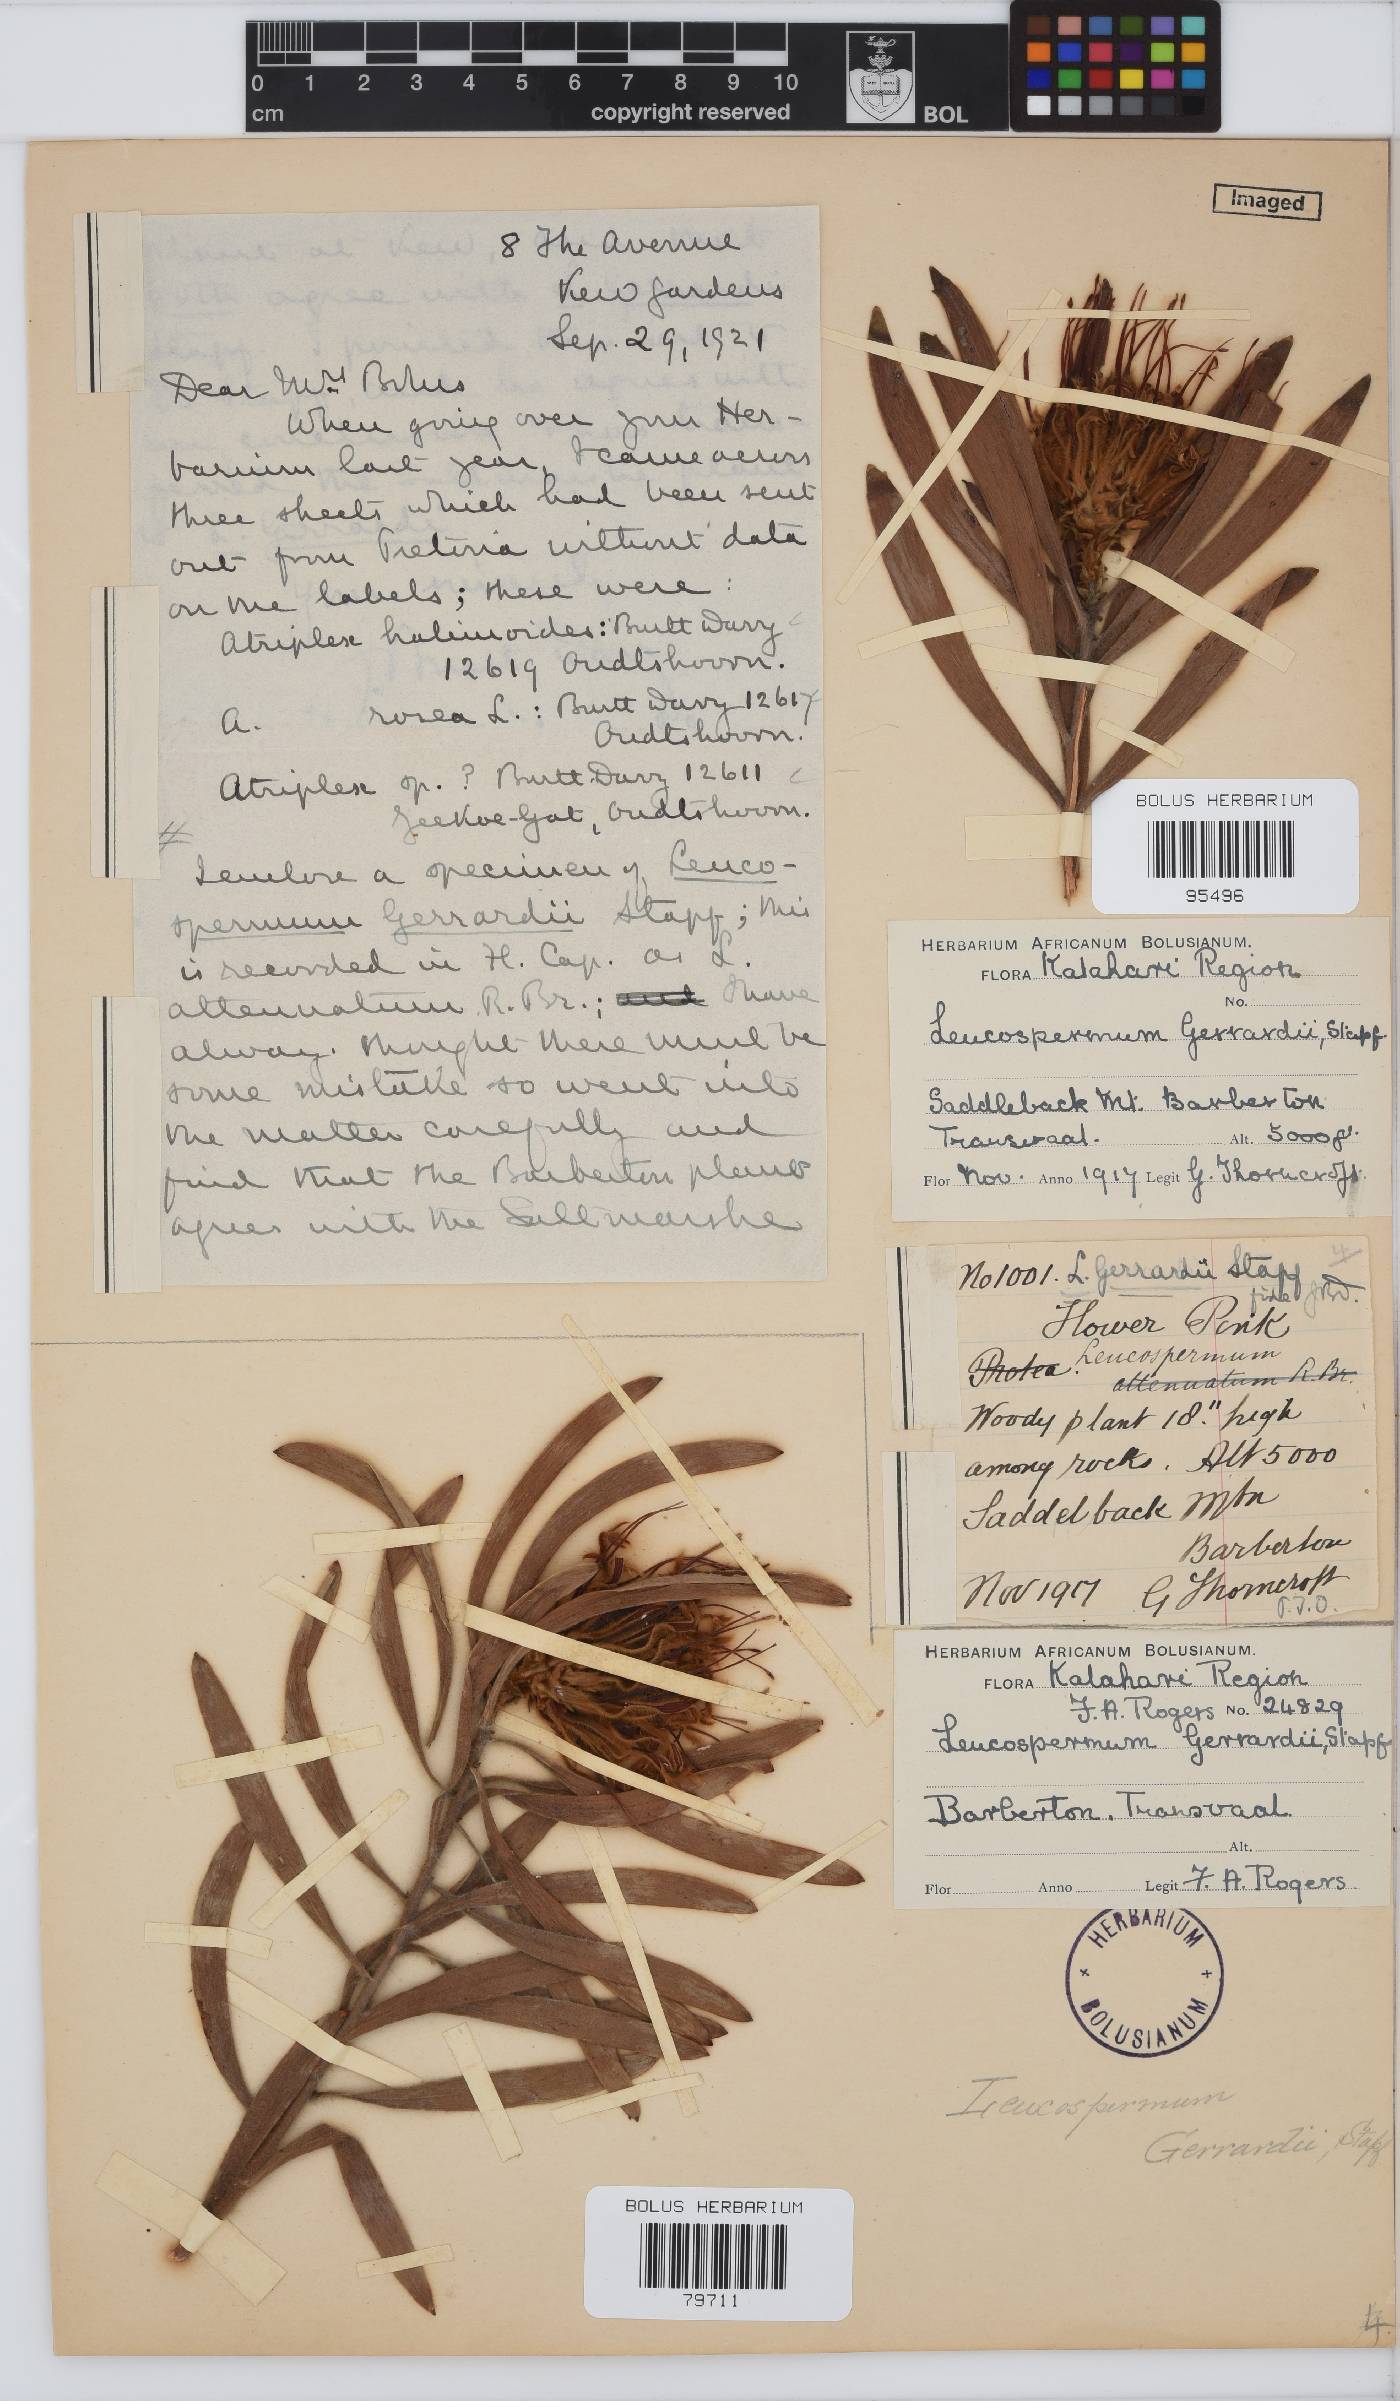 0 1 2 3 4 5 6 7 8 9 10
cm
copyright reserved
BOL
Imaged
8 The Avenue
Kew Gardens
Sep. 29, 1921
Dear Mrs Bolus
When going over your Her-
barium last year, I came across
three sheets which had been sent
out from Pretoria without data
on the labels; these were:
Atriplex halimoides: Burtt Davy
12619 Oudtshoorn.
A. rosea L.: Burtt Davy 12617
Oudtshoorn.
Atriplex sp. ? Burtt Davy 12611
Zeekoe-Gat, Oudtshoorn.
I enclose a specimen of Leuco-
spermum Gerrardii Stapf; this
is recorded in Fl. Cap. as L.
attenuatum R. Br.; and I have
always thought there must be
some mistake so went into
the matter carefully and
find that the Barberton plant
agrees with the Saltmarshe
BOLUS HERBARIUM
95496
HERBARIUM AFRICANUM BOLUSIANUM.
FLORA Kalahari Region
No.
Leucospermum Gerrardii, Stapf
Saddleback Mt. Barberton
Transvaal. Alt. 5000 ft.
Flor Nov. Anno 1917 Legit G. Thorncroft.
No 1001. L. Gerrardii Stapf
fide JBD.
Flower Pink
Protea. Leucospermum
attenuatum R. Br.
Woody plant 18." high
among rocks. Alt 5000
Saddelback Mtn
Barberton
Nov 1917 G Thorncroft
P.T.O.
HERBARIUM AFRICANUM BOLUSIANUM.
FLORA Kalahari Region
F. A. Rogers No. 24829
Leucospermum Gerrardii, Stapf
Barberton. Transvaal
Alt.
Flor Anno Legit F. A. Rogers
HERBARIUM
BOLUSIANUM
Leucospermum
Gerrardii, Stapf
BOLUS HERBARIUM
79711
4.